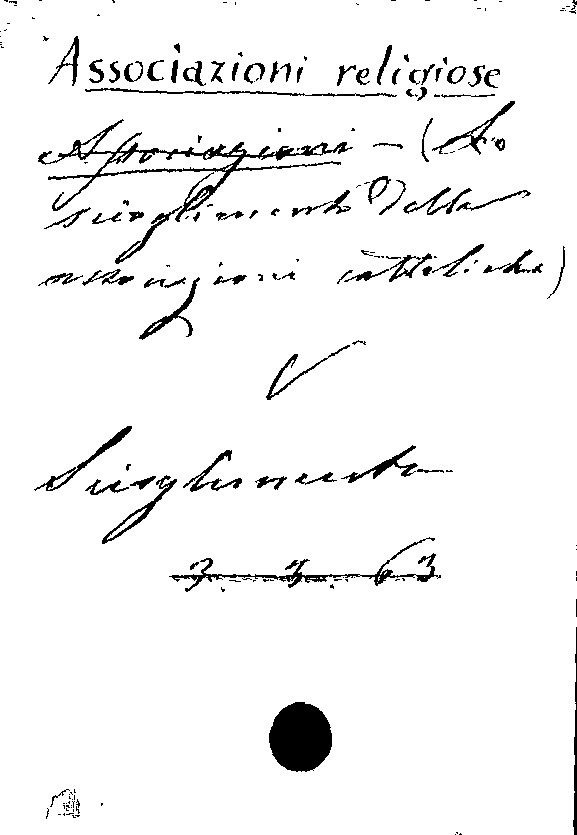 Associazioni religiose
Associazioni - (Lo
scioglimento della
associazioni cattoliche)
V
Scioglimento
3. 3. 63